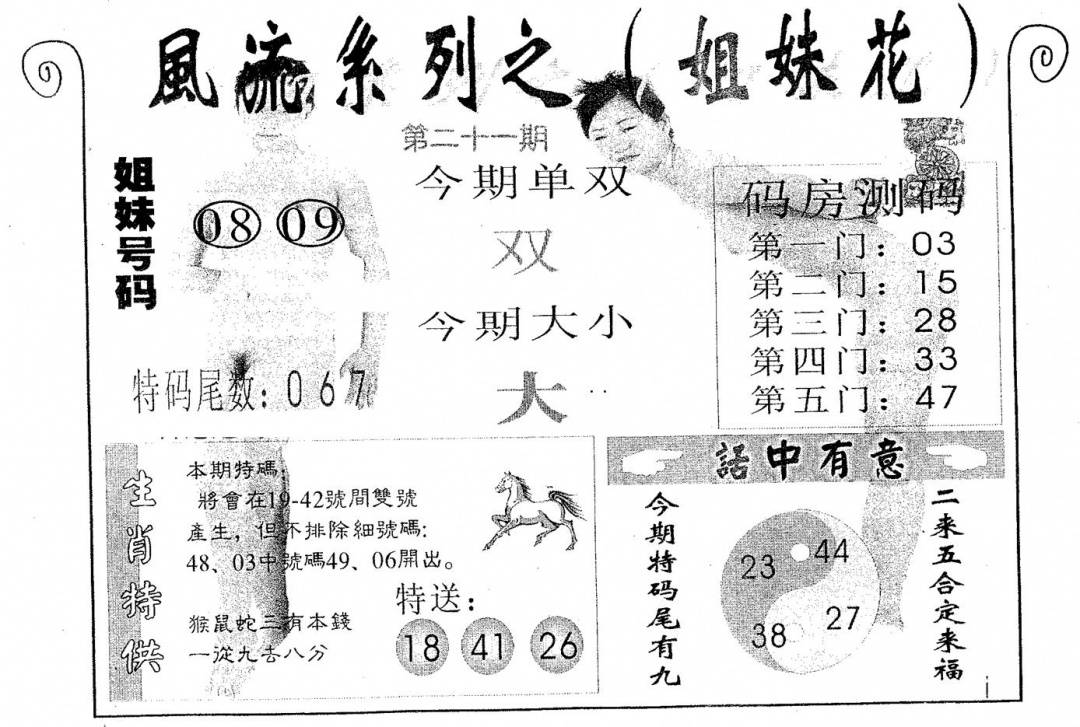 風流系列之（姐妹花）
第二十一期
姐妹号码
08 09
特码尾数：067
今期单双
双
今期大小
大
码房测码
第一门：03
第二门：15
第三门：28
第四门：33
第五门：47
生肖特供
本期特碼：
將會在19-42號間雙號
產生，但不排除細號碼:
48、03中號碼49、06開出。
猴鼠蛇三有本錢
一從九去八分
特送：
18 41 26
話中有意
今期特码尾有九
23 44
38 27
二来五合定来福